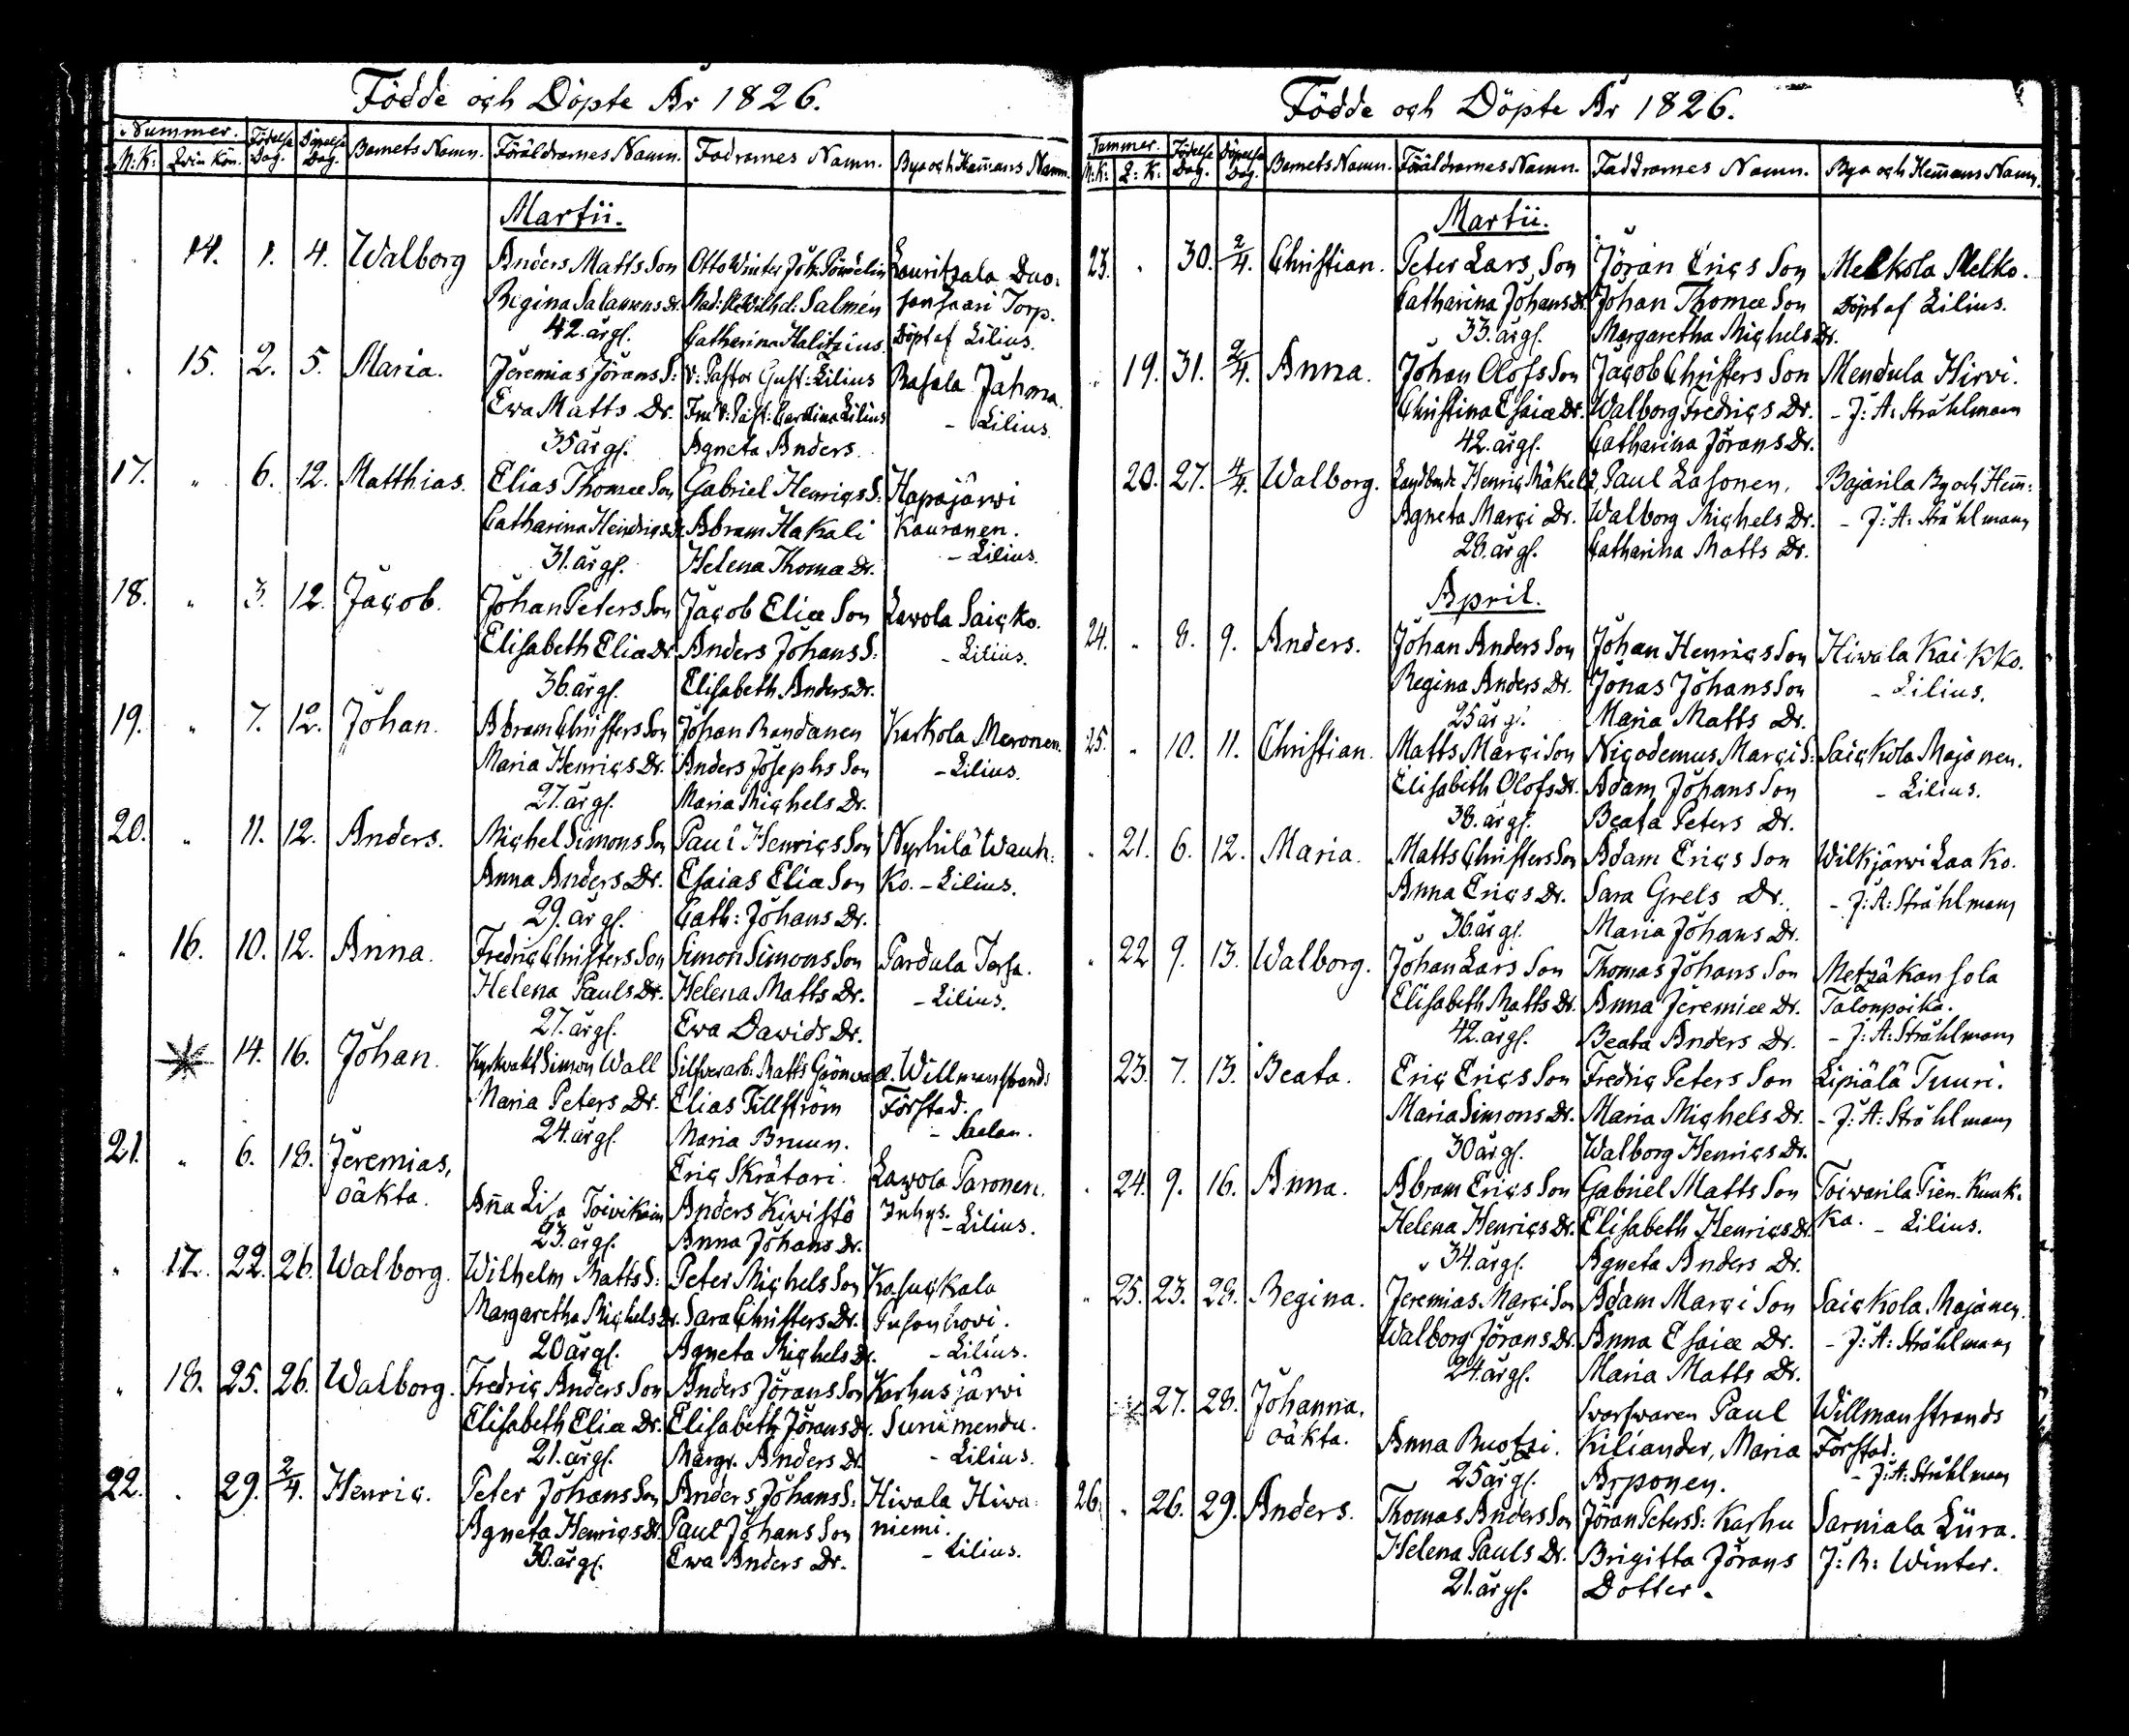 Födde och Döpte År 1826.
Nummer. Födelse Dag. Döpelse Dag. Barnets Namn. Föräldrarnes Namn. Fadrarnes Namn. Bya och Hem̃ans Namn.
M: K: Qvin Kön.
Martii.
14. 1. 4. Walborg Anders Matts Son Otto Winter Joh: Lauritzala Duo-
Regina Salamons Dr. Salmén sonsaari Torp.
42. årgl. Catharina Halitzius. Döpt af Lilius.
15. 2. 5. Maria. Jeremias Jörans S: V: Pastor Gust: Lilius Rasala Jahma.
Ewa Matts Dr. Fru V: Past: Carolina Lilius - Lilius.
35 årgl. Agneta Anders
17. " 6. 12. Matthias. Elias Thomæ Son Gabriel Henrics S: Hapajärwi
Catharina Heindrics Dr. Abram Hakali Kauranen.
31. årgl. Helena Thomæ Dr. - Lilius.
18. " 3. 12. Jacob. Johan Peters Son Jacob Eliæ Son Lawola Saicko.
Elisabeth Eliæ Dr. Anders Johans S: - Lilius.
36. årgl. Elisabeth Anders Dr.
19. " 7. 12. Johan. Abram Christers Son Johan Randanen Karkola Meronen.
Maria Henrics Dr. Anders Josephs Son - Lilius.
27. årgl. Maria Michels Dr.
20. " 11. 12. Anders. Michel Simons Son Paul Henrics Son Nyrhilä Wauh-
Anna Anders Dr. Esaias Eliæ Son Ko. - Lilius.
29. årgl. Cath: Johans Dr.
" 16. 10. 12. Anna. Fredric Christers Son Simon Simons Son Pardula Torsa.
Helena Pauls Dr. Helena Matts Dr. - Lilius.
27. årgl. Ewa Dawids Dr.
14. 16. Johan. Simon Wall Silfverarb: Matts Grönwa Willmanstrands
Maria Peters Dr. Elias Tillström Förstad.
24. årgl. Maria Bruun.
21. " 6. 18. Jeremias, Eric Skrätari. Lawola Paronen.
oäkta. Aña Lisa Toivikain Anders Kiwistö Inhys. - Lilius.
23. årgl. Anna Johans Dr.
" 17. 22. 26. Walborg. Wilhelm Matts S: Peter Michels Son Kasuckala
Margaretha Michels Dr. Sara Christers Dr.
20 årgl. Agneta Michels Dr. - Lilius.
" 18. 25. 26. Walborg. Fredric Anders Son Anders Jörans Son Karhusjärwi
Elisabeth Eliæ Dr. Elisabeth Jörans Dr. Surimendu.
21. årgl. Margr. Anders Dr. - Lilius.
22. " 29. 2/4. Henric. Peter Johans Son Anders Johans S: Hiwala Hiwa-
Agneta Henrics Dr. Paul Johans Son niemi.
30. årgl. Ewa Anders Dr. - Lilius.
Födde och Döpte År 1826.
Nummer. Födelse Dag. Döpelse Dag. Barnets Namn. Föräldrarnes Namn. Faddrarnes Namn. Bya och Hem̃ans Namn.
M: K: Q: K:
Martii.
23. " 30. 2/4. Christian. Peter Lars Son Jöran Erics Son Melkola Melko.
Catharina Johans Dr. Johan Thomæ Son Döpt af Lilius.
33. årgl. Margaretha Michels Dr.
" 19. 31. 2/4. Anna. Johan Olofs Son Jacob Christers Son Mendula Hirvi.
Christina Esaiæ Dr. Walborg Fredrics Dr. - J: A: Stråhlman
42. årgl. Catharina Jörans Dr.
20. 27. 4/4. Walborg. Landbonde Henric Mäkelä Paul Lasonen, Bajarila By och Hem̃:
Agneta Marci Dr. Walborg Michels Dr. - J: A: Stråhlman
28. årgl. Catharina Matts Dr.
April.
24. " 8. 9. Anders. Johan Anders Son Johan Henrics Son Hiwala Kaikko.
Regina Anders Dr. Jonas Johans Son - Lilius.
25 årgl. Maria Matts Dr.
25. " 10. 11. Christian. Matts Marci Son Nicodemus Marci S: Saickola Majanen.
Elisabeth Olofs Dr. Adam Johans Son - Lilius.
38. årgl. Beata Peters Dr.
" 21. 6. 12. Maria. Matts Christers Son Adam Erics Son Wilkjärwi Laako.
Anna Erics Dr. Sara Grels Dr. - J: A: Stråhlman
36. årgl. Maria Johans Dr.
" 22 9. 13. Walborg. Johan Lars Son Thomas Johans Son Metzäkansola
Elisabeth Matts Dr. Anna Jeremiæ Dr. Talonpoika.
42. årgl. Beata Anders Dr. - J: A: Stråhlman
23. 7. 13. Beata. Eric Erics Son Fredric Peters Son Lipiälä Tuuri.
Maria Simons Dr. Maria Michels Dr. - J: A: Stråhlman
30 årgl. Walborg Henrics Dr.
" 24. 9. 16. Anna. Abram Erics Son Gabriel Matts Son Toiwarila Pien-Kuuk-
Helena Henrics Dr. Elisabeth Henrics Dr. Ka. - Lilius.
34. årgl. Agneta Anders Dr.
" 25. 23. 28. Regina. Jeremias Marci Son Adam Marci Son Saickola Majanen.
Walborg Jörans Dr. Anna Esaiæ Dr. - J: A: Stråhlman
24. årgl. Maria Matts Dr.
27. 28. Johanna, Paul Willmanstrands
oäkta. Anna Ruotzi. Kiliander, Maria Förstad.
25 årgl. Arponen. - J: A: Stråhlman
26. " 26. 29. Anders. Thomas Anders Son Jöran Peters S: Karhu Sarniala Lüra.
Helena Pauls Dr. Brigitta Jörans J: R: Winter.
21. årgl. Dotter.